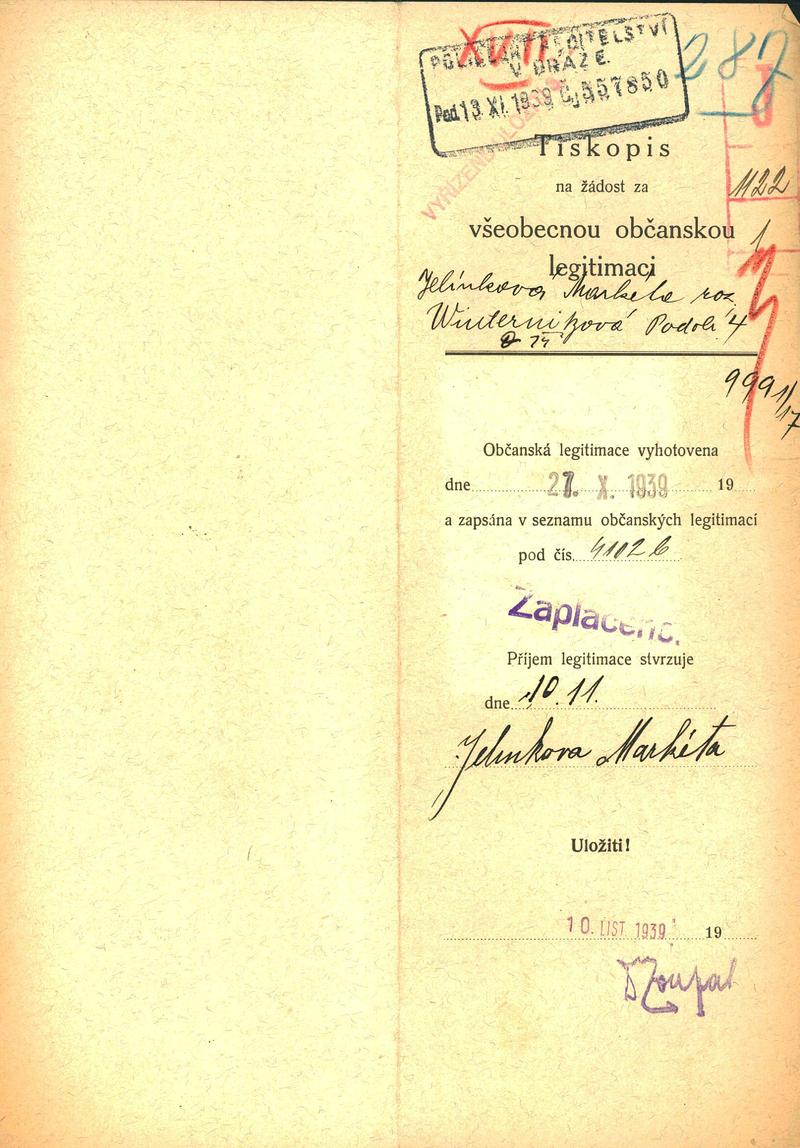 XVII.
POLICEJNÍ ŘEDITELSTVÍ
V PRAZE.
287
Pod 13.XI.1939 Čj 557850
VYŘÍZENO ULOŽ
Tiskopis
na žádost za
1122
všeobecnou občanskou
1
legitimaci
Jelínková Markéta roz.
Winternitzová Podolí 4
Občanská legitimace vyhotovena
dne 27. X. 1939 19
a zapsána v seznamu občanských legitimací
pod čís. 41026
Zaplaceno.
Příjem legitimace stvrzuje
dne 10.11.
Jelinkova Markéta
Uložiti!
10. LIST. 1939 19